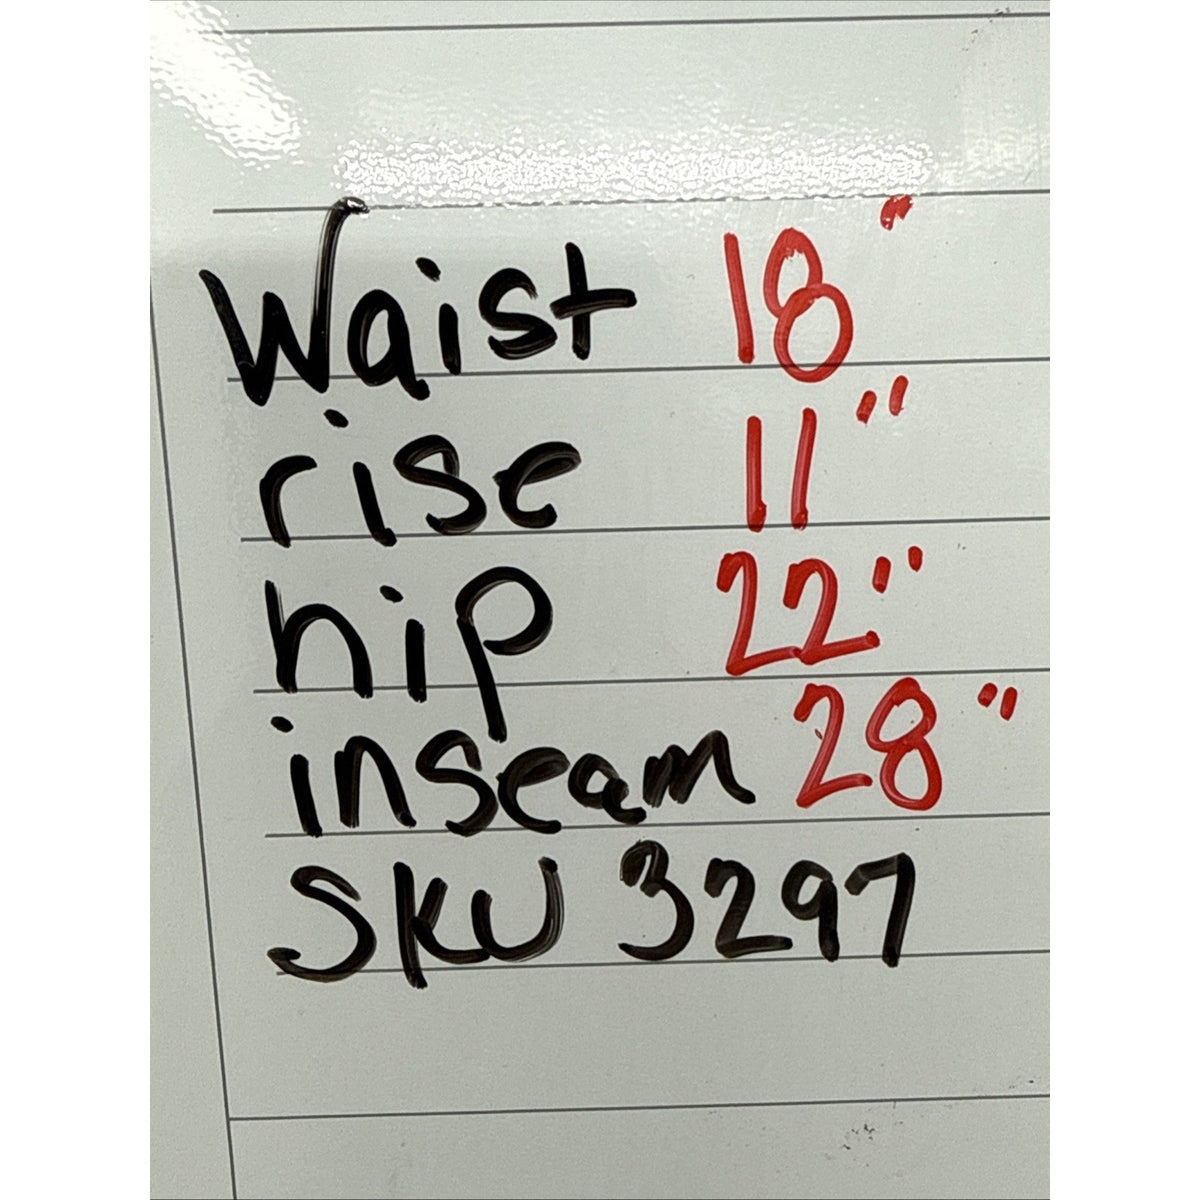 Waist 18"
rise 11"
hip 22"
inseam 28"
SKU 3297